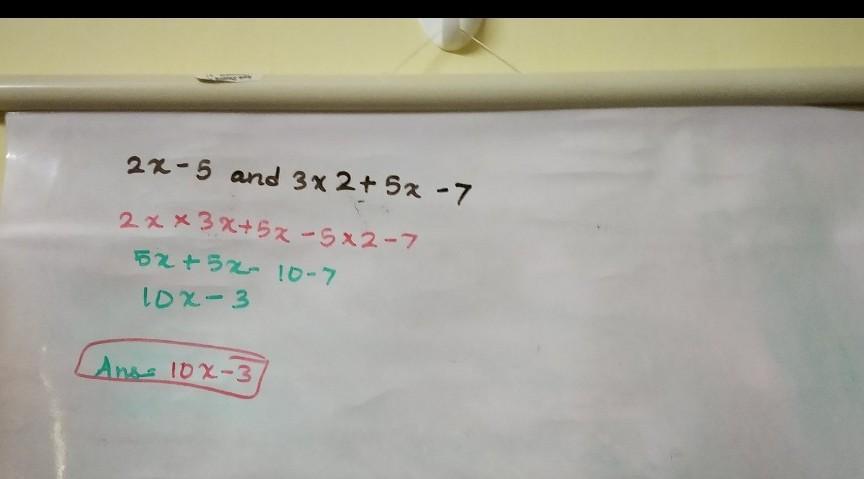 2x-5 and 3x2+5x-7
2x×3x+5x-5x2-7
5x+5x-10-7
10x-3
Ans= 10x-3